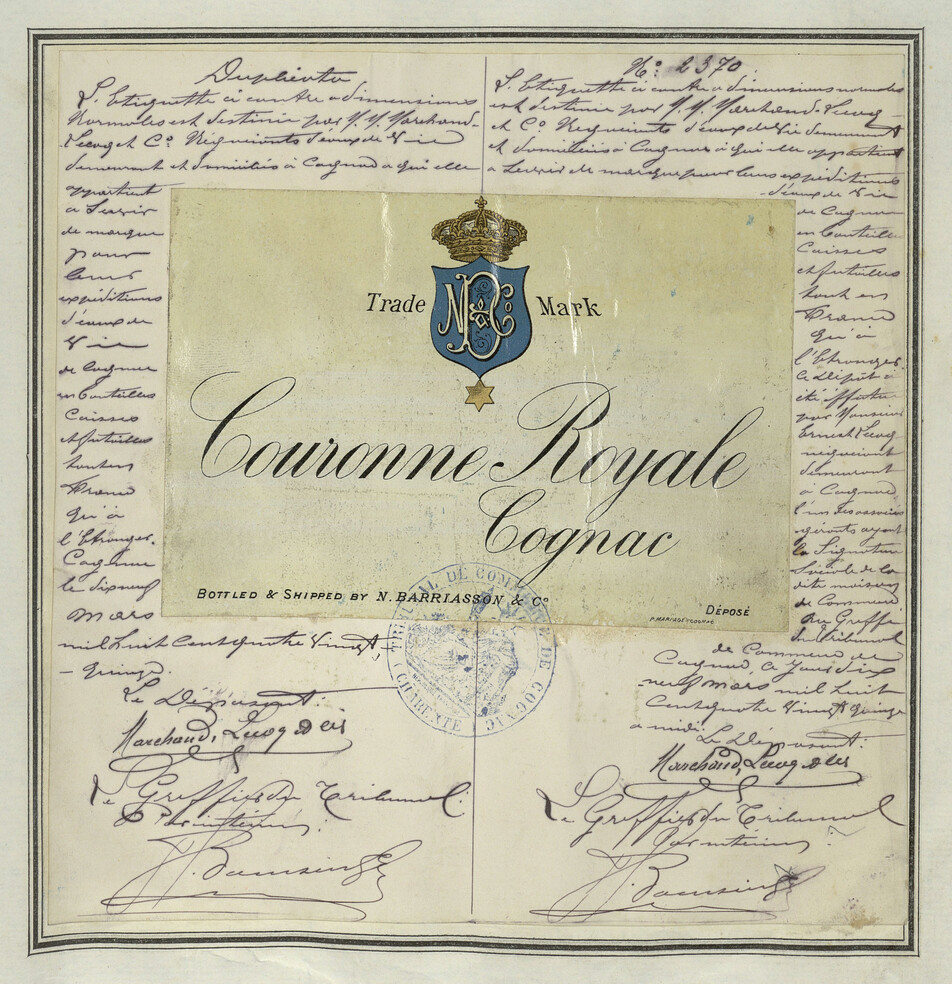 Duplicata
L'Etiquette ci contre a dimensions
Normales est destinée par M. M. Marchand-
Lecoq et Co. Négociants d'eaux de Vie
demeurant et domiciliés à Cognac à qui elle
appartient
à Servir
de marque
pour
leurs
expéditions
d'eaux de
Vie
de Cognac
en bouteilles
Caisses
et futailles
tant en
France
qu'à
l'Etranger.
Cognac
le dix neuf
Mars
mil huit cent quatre Vingt
-quinze.
Le Déposant:
Marchand, Lecoq & Cie
Le Greffier du Tribunal.
Par intérim:
No: 2370.
L'Etiquette ci contre a dimensions normales
est destinée par M. M. Marchand-Lecoq
et Co. Négociants d'eaux de Vie demeurant
et domiciliés à Cognac à qui elle appartient
a Servir de marque pour leurs expéditions
d'eaux de Vie
de Cognac
en bouteilles
Caisses
et futailles
tant en
France
qu'à
l'Etranger.
Ce Dépôt a
été effectué
par Monsieur
Ernest Lecoq
négociant
demeurant
à Cognac
l'un des associés
gérants ayant
la Signature
Sociale de la
dite maison
de Commerce
au Greffe
du Tribunal
de Commerce de
Cognac ce jour dix
neuf mars mil huit
Cent quatre Vingt quinze
a midi.
Le Déposant:
Marchand, Lecoq & Cie
Le Greffier du Tribunal
Par intérim:
Trade Mark
Couronne Royale
Cognac
BOTTLED & SHIPPED BY N. BARRIASSON & Co
DÉPOSÉ
TRIBUNAL DE COMMERCE DE COGNAC
(CHARENTE)